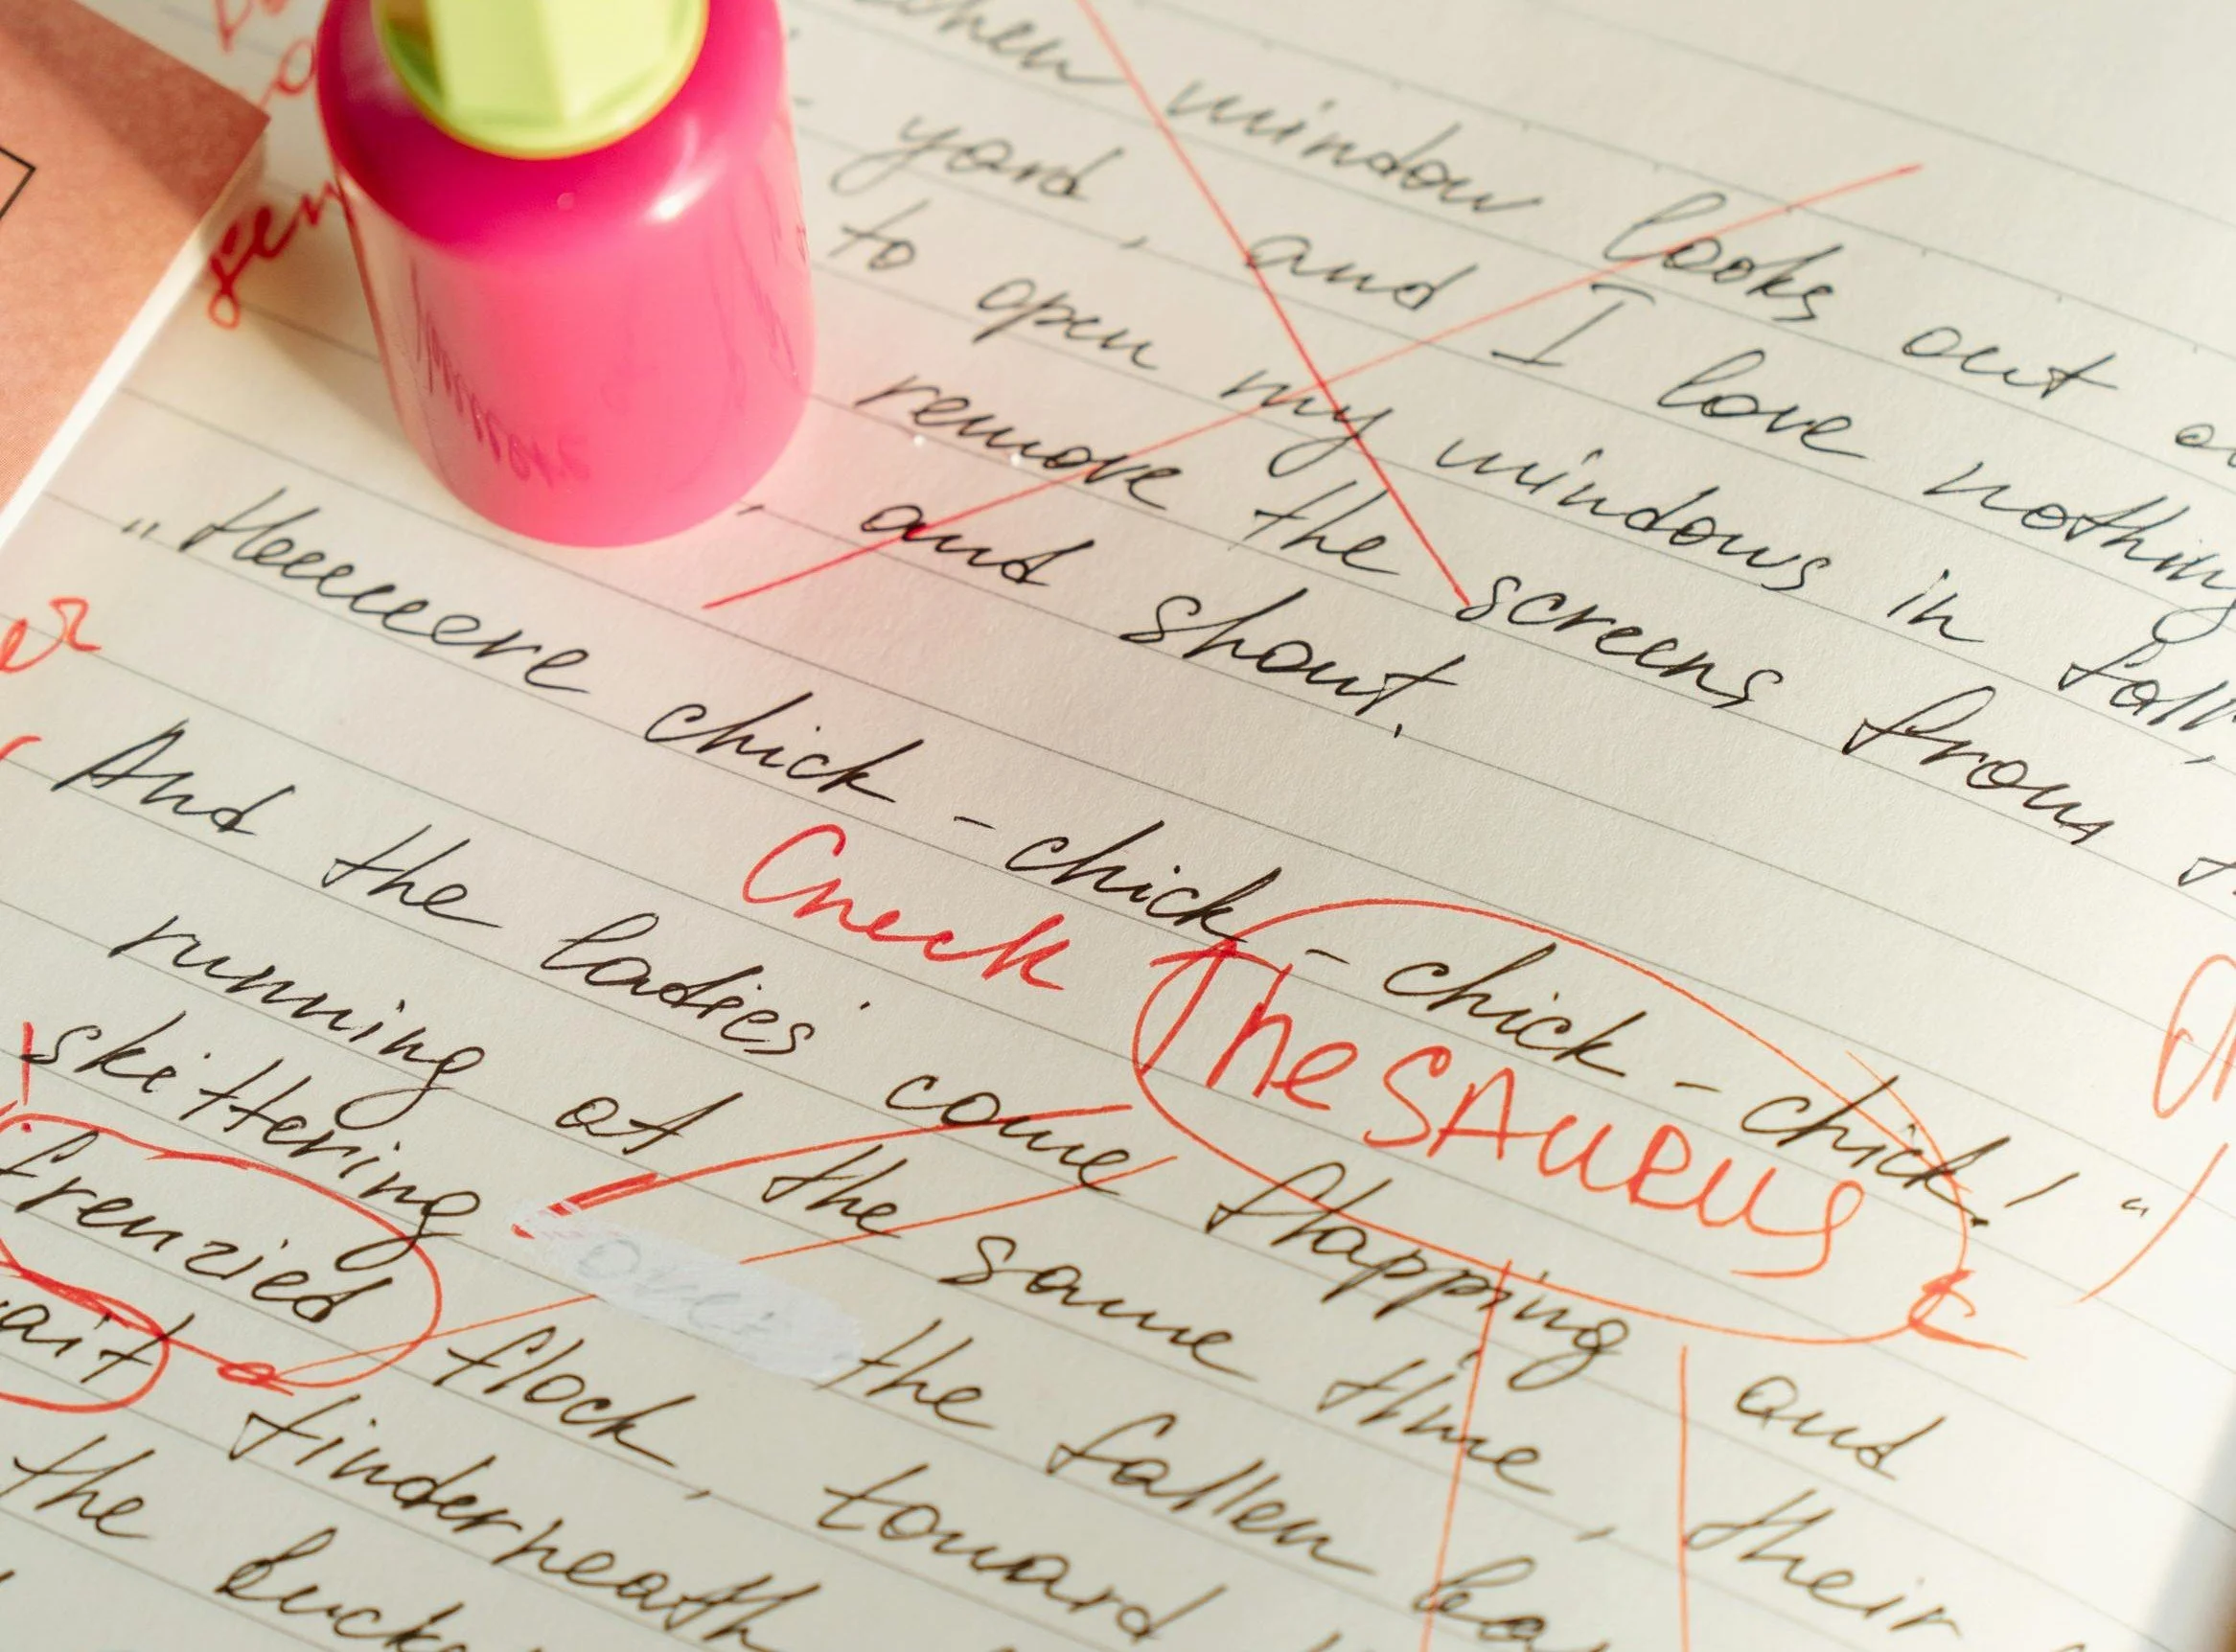 window looks out
yard, and I love nothing
to open my windows in fall,
remove the screens from
, and shout.
„Heeeeere chick-chick-chick-chick!“
Check
THeSAURUS
And the ladies come flapping and
running at the same time, their
skittering over the fallen
frenzied flock, toward
ait tinderneath
the